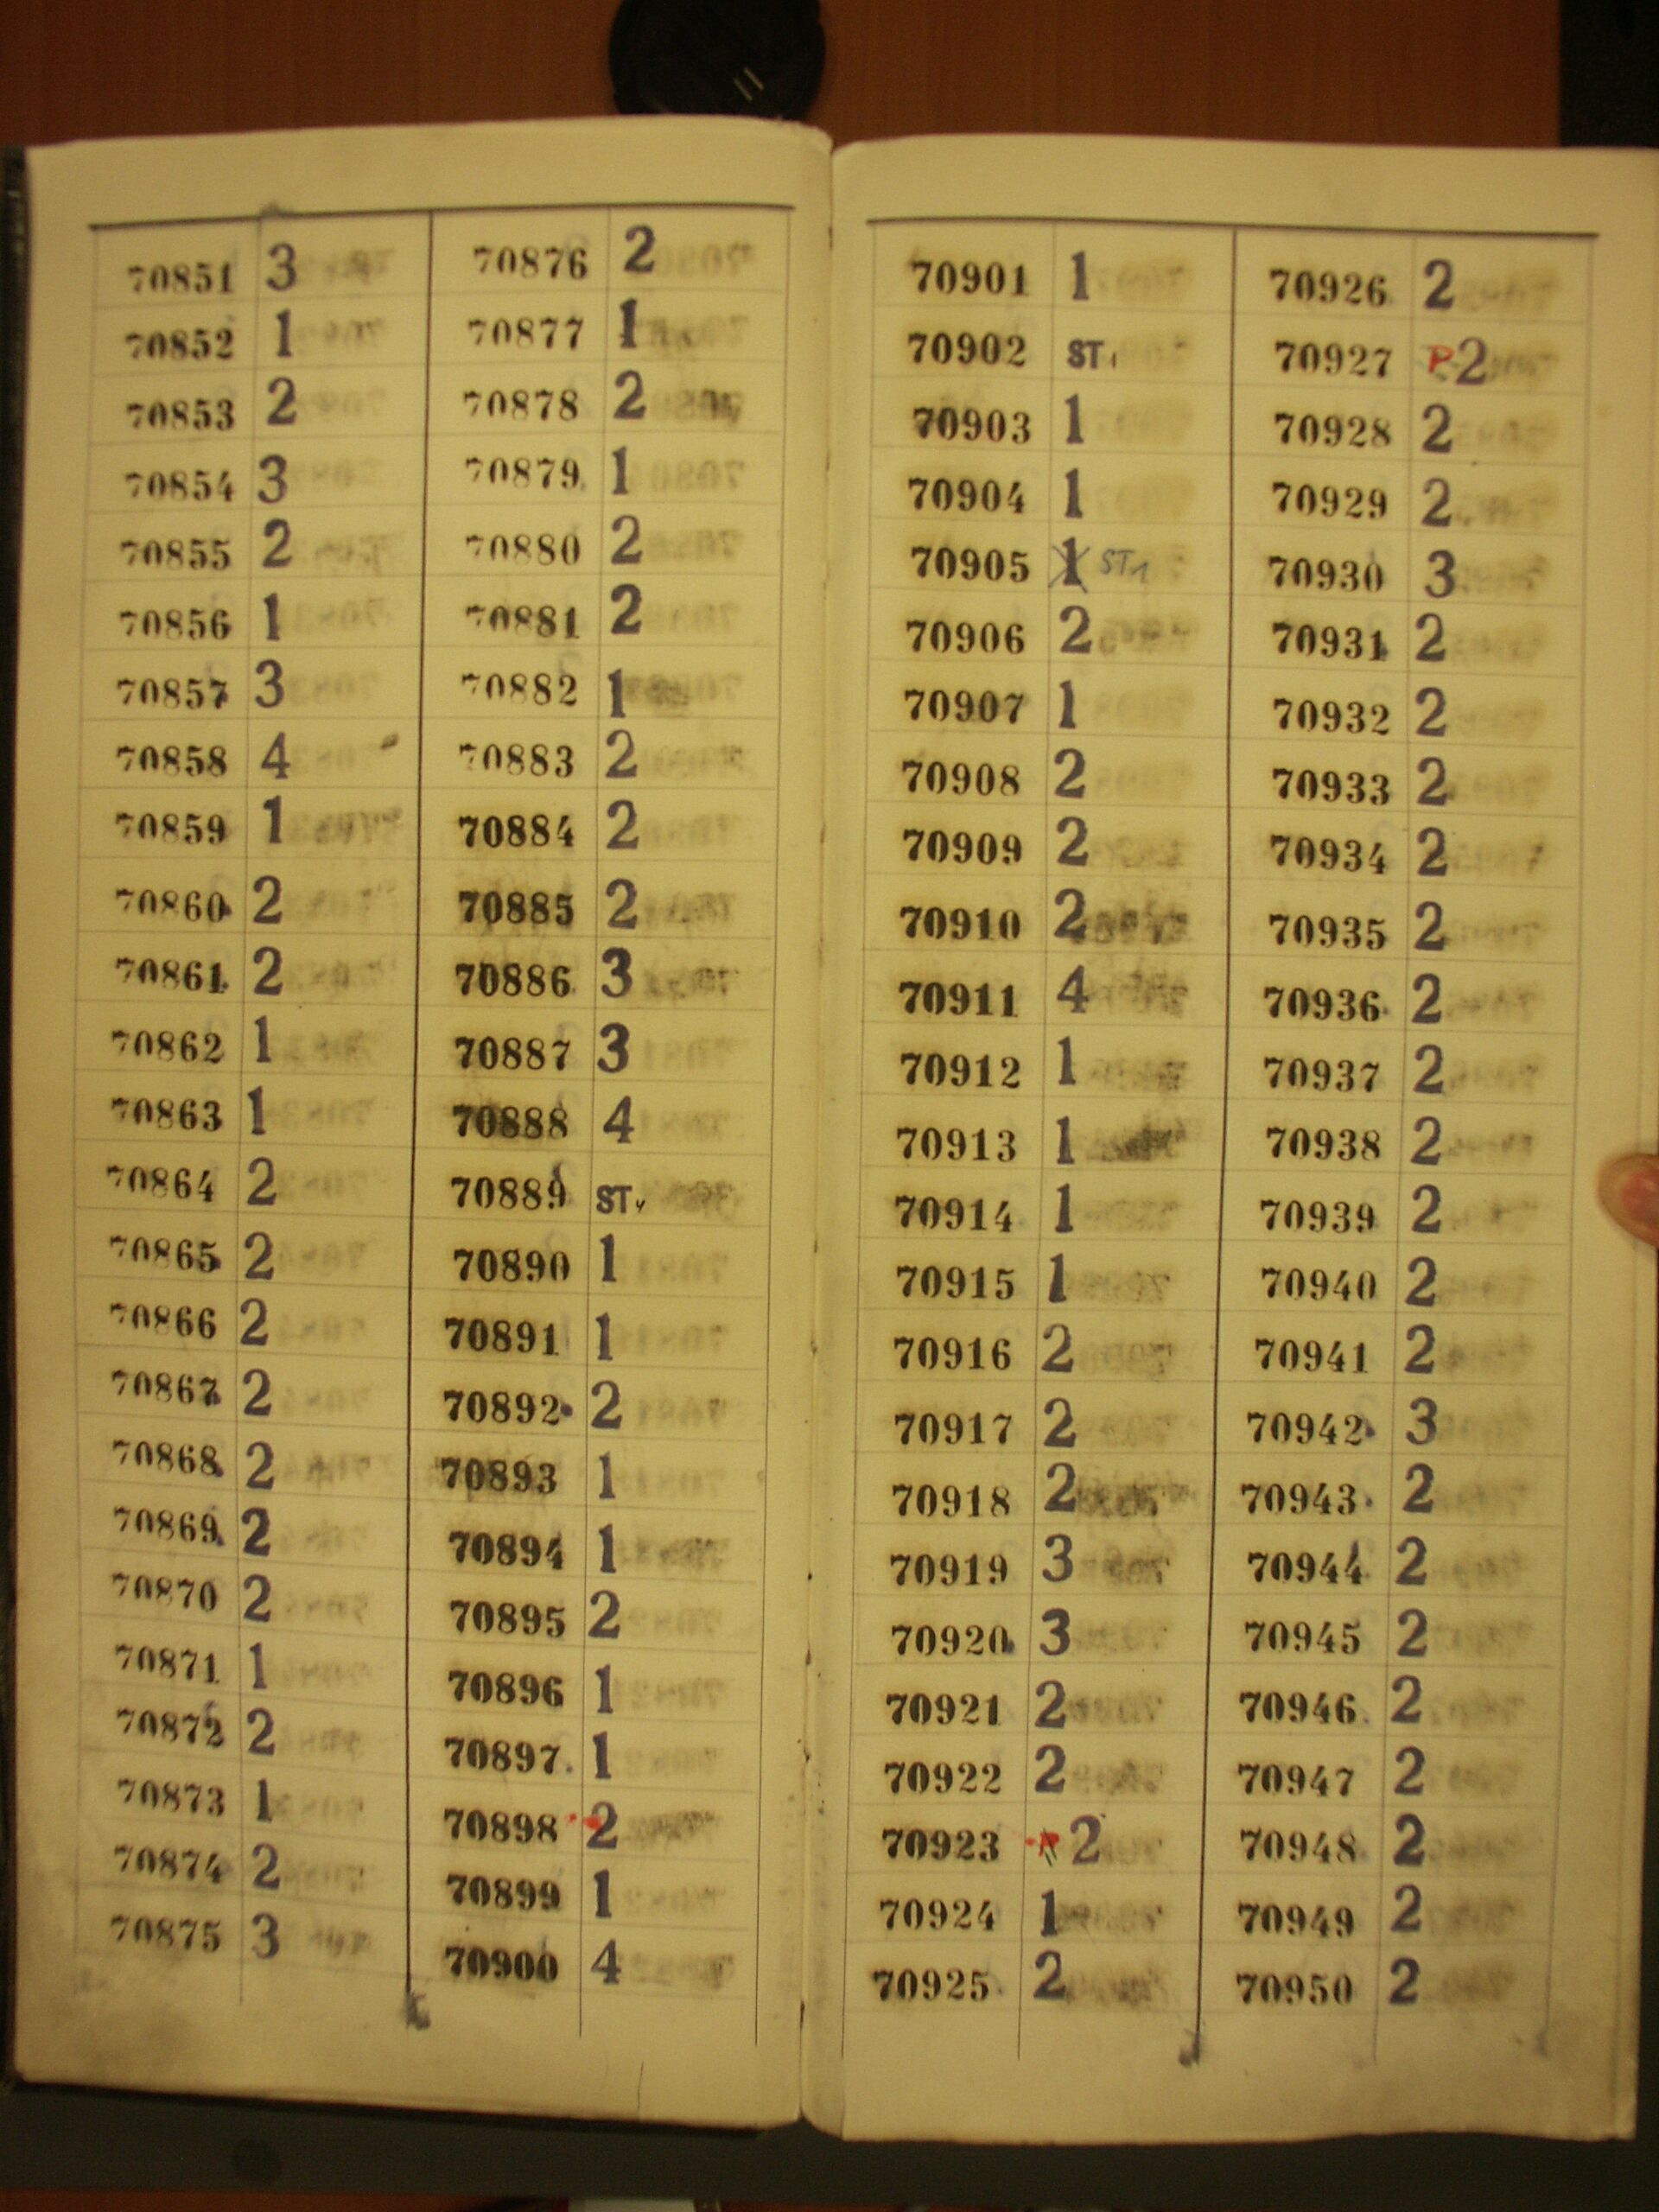 70851 3
70852 1
70853 2
70854 3
70855 2
70856 1
70857 3
70858 4
70859 1
70860 2
70861 2
70862 1
70863 1
70864 2
70865 2
70866 2
70867 2
70868 2
70869 2
70870 2
70871 1
70872 2
70873 1
70874 2
70875 3
70876 2
70877 1
70878 2
70879 1
70880 2
70881 2
70882 1
70883 2
70884 2
70885 2
70886 3
70887 3
70888 4
70889 ST
70890 1
70891 1
70892 2
70893 1
70894 1
70895 2
70896 1
70897 1
70898 2
70899 1
70900 4
70901 1
70902 ST
70903 1
70904 1
70905 1 ST1
70906 2
70907 1
70908 2
70909 2
70910 2
70911 4
70912 1
70913 1
70914 1
70915 1
70916 2
70917 2
70918 2
70919 3
70920 3
70921 2
70922 2
70923 P 2
70924 1
70925 2
70926 2
70927 P 2
70928 2
70929 2
70930 3
70931 2
70932 2
70933 2
70934 2
70935 2
70936 2
70937 2
70938 2
70939 2
70940 2
70941 2
70942 3
70943 2
70944 2
70945 2
70946 2
70947 2
70948 2
70949 2
70950 2